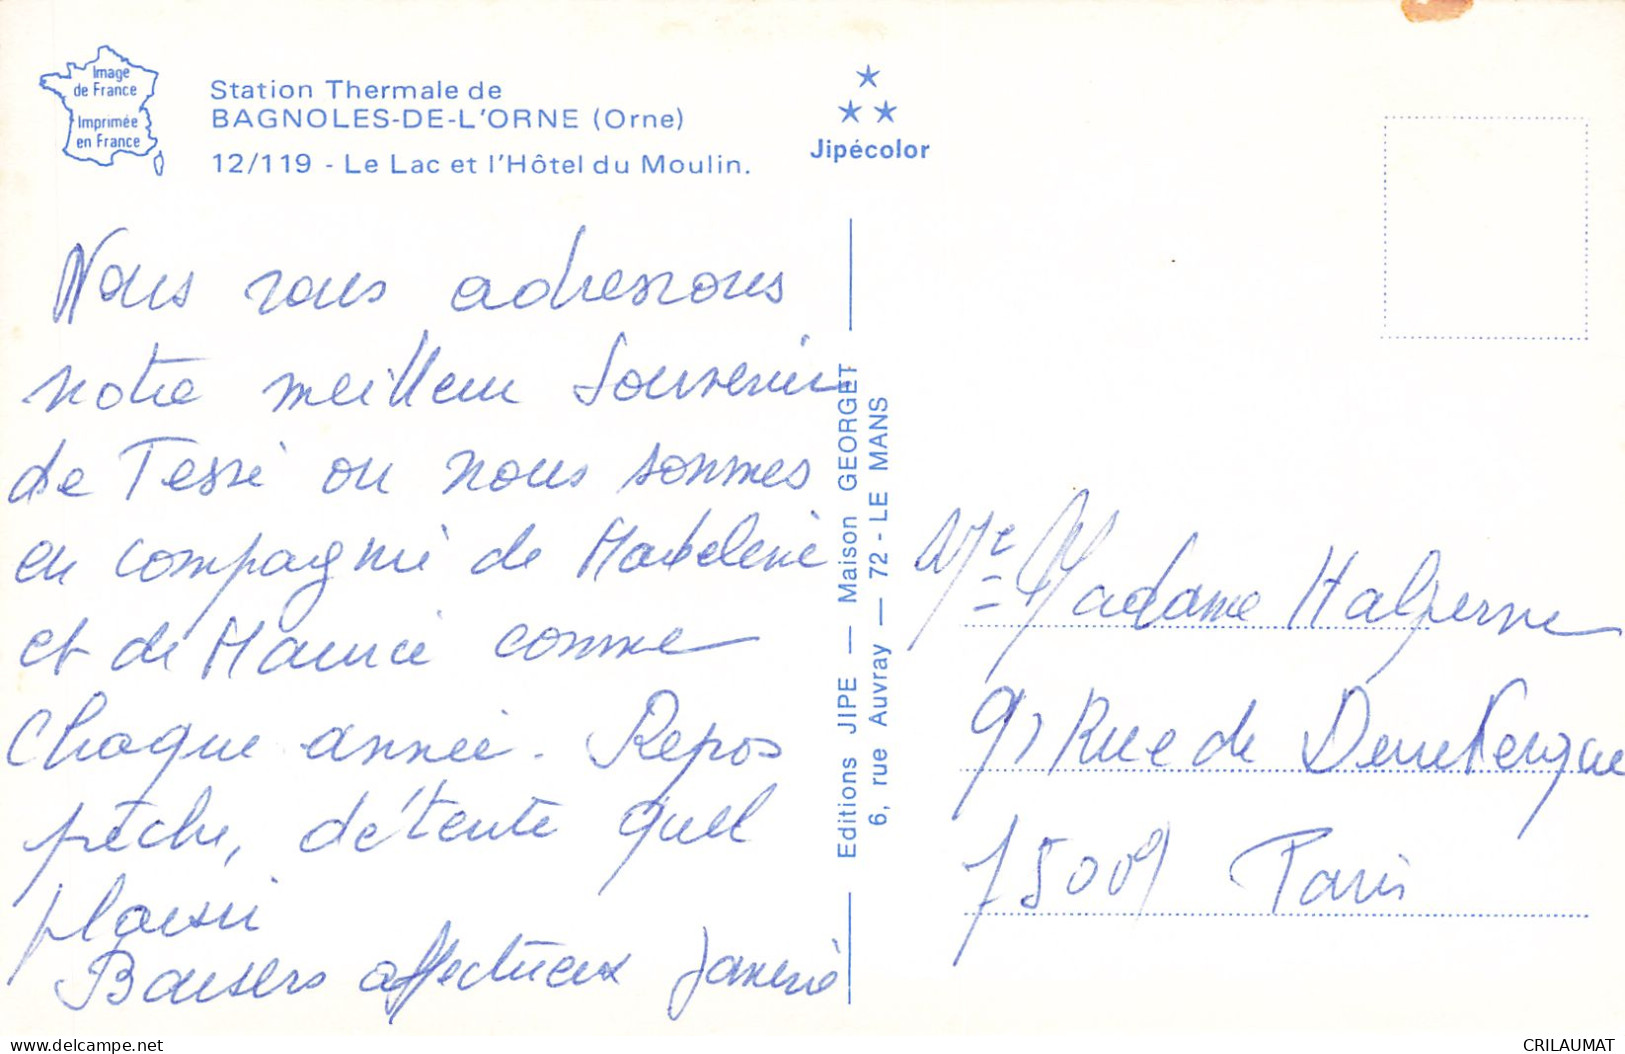 Image
de France
Imprimée
en France
Station Thermale de
BAGNOLES-DE-L'ORNE (Orne)
12/119 - Le Lac et l'Hôtel du Moulin.
Jipécolor
Nous vous adressons
notre meilleur souvenir
de Tessé ou nous sommes
en compagnie de Madeleine
et de Maurice comme
chaque année. Repos
pêche, détente quel
plaisir
Baisers affectueux
Editions JIPE — Maison GEORGET
6, rue Auvray — 72 - LE MANS
Madame Halperne
9, Rue de
75009 Paris
delcampe.net
CRILAUMAT